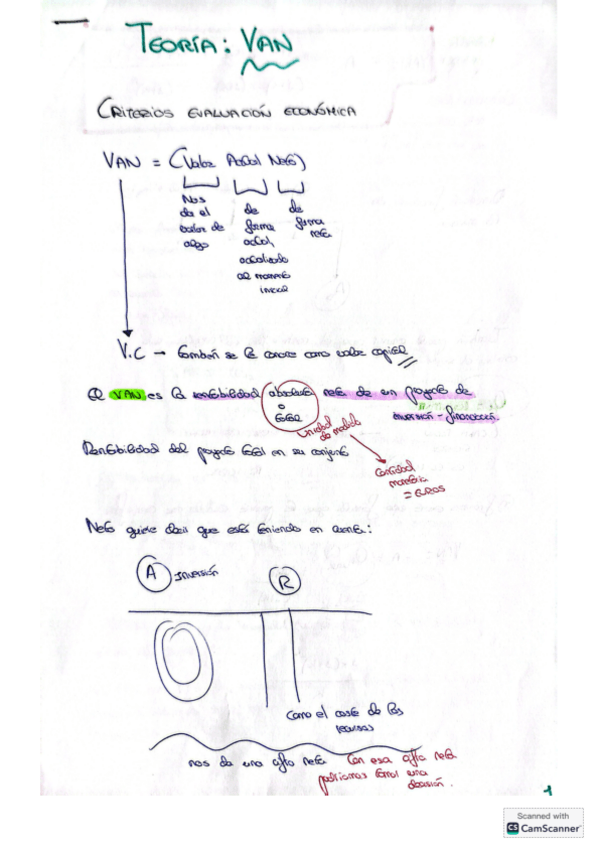 TEORÍA: VAN
CRITERIOS EVALUACIÓN ECONÓMICA
VAN = (Valor Actual Neto)
Nos da el valor de algo
de forma actual, actualizado al momento inicial
de forma neta
V.C → también se le conoce como valor capital
El VAN es la rentabilidad absoluta o total neta de un proyecto de inversión-financiación.
unidad de medida
Cantidad monetaria = EUROS
Rentabilidad del proyecto total en su conjunto
Neto quiere decir que está teniendo en cuenta:
A INVERSIÓN R
Como el coste de los recursos
nos da una cifra neta
Con esa cifra neta podríamos tomar una decisión.
1
Scanned with
CS CamScanner